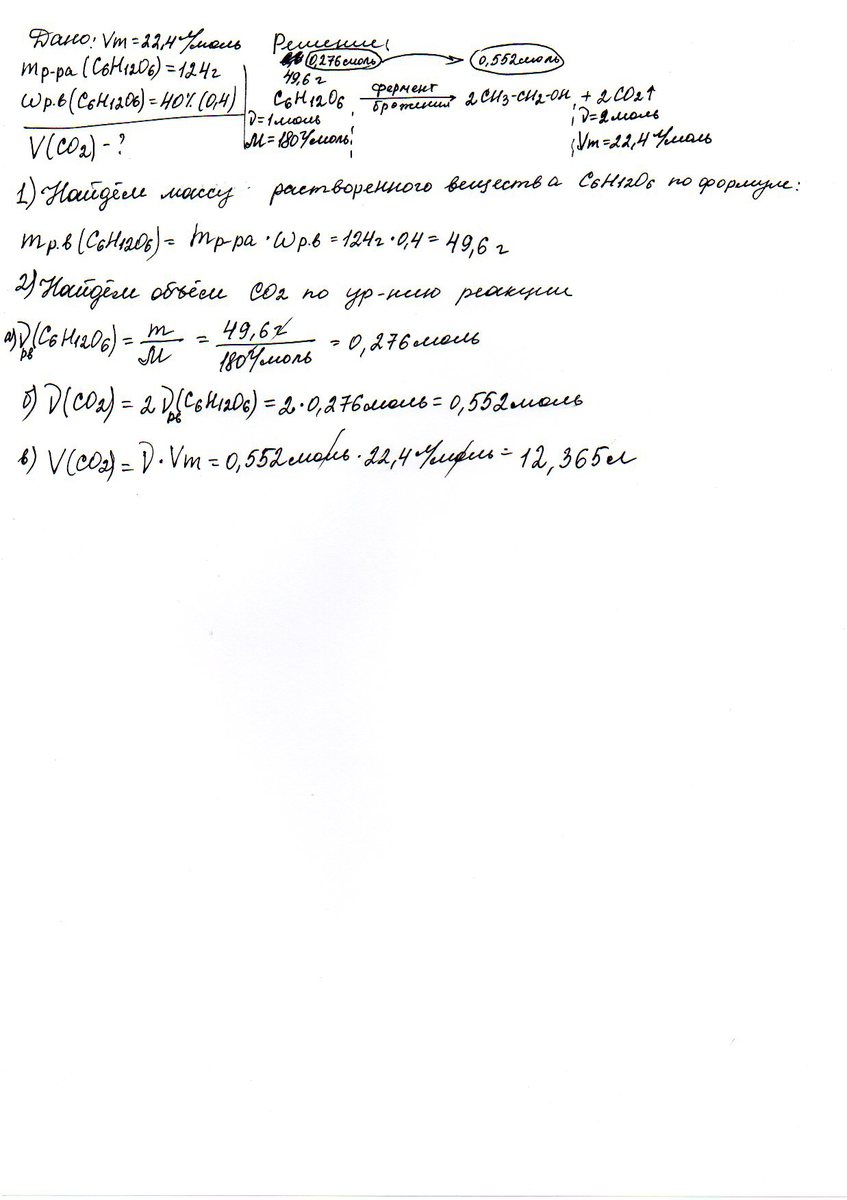 Дано: Vm=22,4 л/моль Решение:
mр-ра (C6H12O6)=124г 0,276моль 0,552моль
49,6 г
ωр.в (C6H12O6)=40% (0,4) C6H12O6 фермент брожения 2CH3-CH2-OH + 2CO2↑
ν=1моль ν=2моль
V(CO2)-? M=180г/моль Vm=22,4 л/моль
1) Найдём массу растворенного вещества C6H12O6 по формуле:
mр.в (C6H12O6)= mр-ра · ωр.в = 124г · 0,4 = 49,6 г
2) Найдём объём CO2 по ур-нию реакции
а) νрв(C6H12O6) = m/M = 49,6г/180г/моль = 0,276моль
б) ν(CO2) = 2 νрв(C6H12O6) = 2·0,276моль = 0,552моль
в) V(CO2) = ν·Vm = 0,552моль · 22,4 л/моль = 12,365л